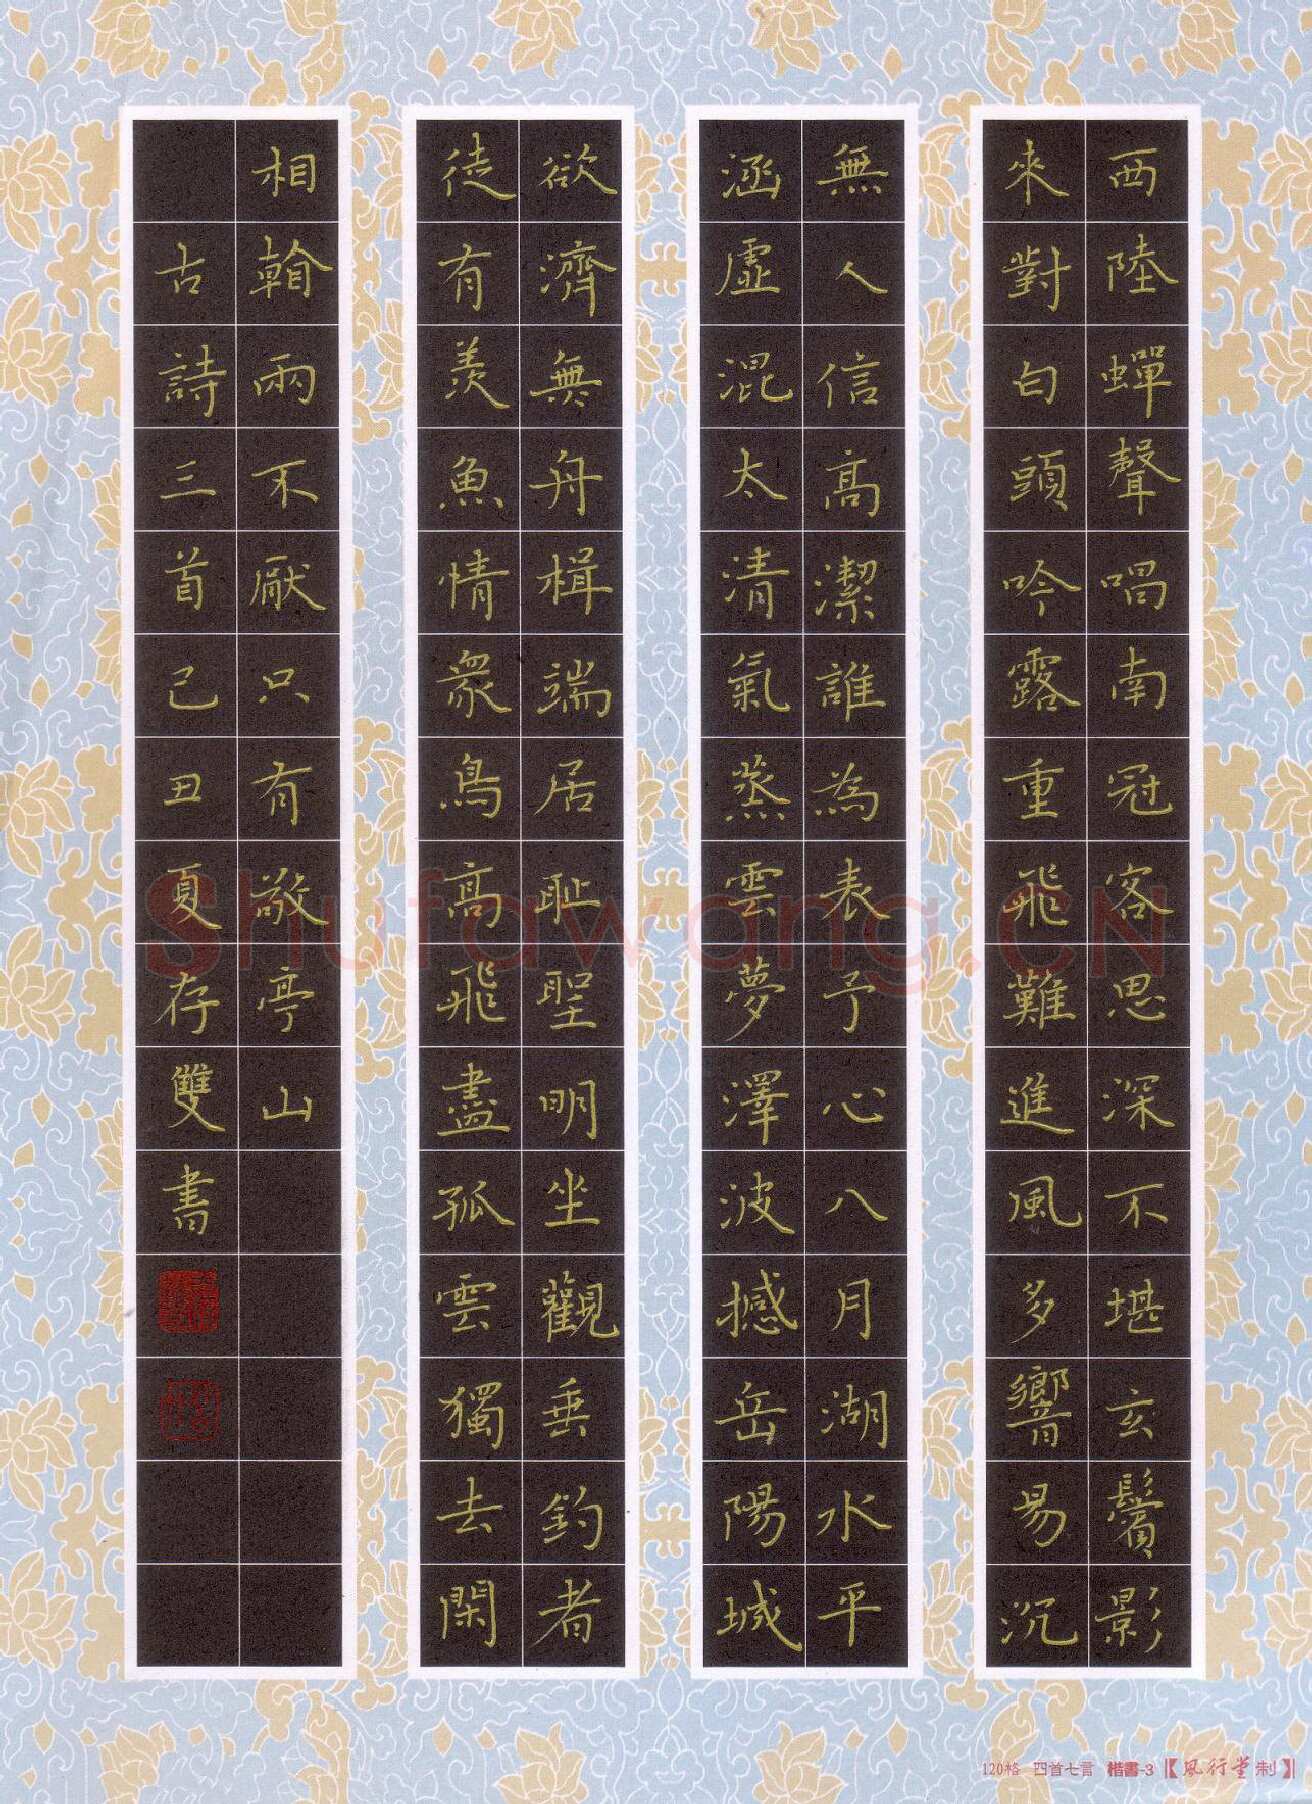 西陸蟬聲唱南冠客思深不堪玄鬢影
來對白頭吟露重飛難進風多響易沉
無人信高潔誰為表予心八月湖水平
涵虛混太清氣蒸雲夢澤波撼岳陽城
欲濟無舟楫端居耻聖明坐觀垂釣者
徒有羨魚情衆鳥高飛盡孤雲獨去閑
相看兩不厭只有敬亭山
古詩三首己丑夏存雙書
Shufawang.CN
120格 四首七言 楷書-3【風行堂制】